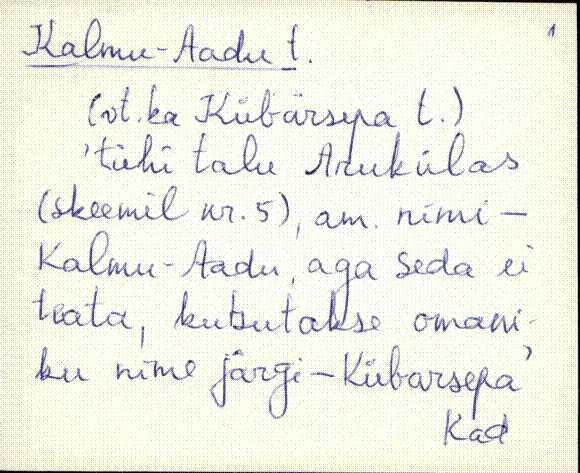 1
Kalmu-Aadu t.
(vt. ka Kübärsepa t.)
'tühi talu Arukülas
(skeemil nr. 5), am. nimi –
Kalmu-Aadu, aga seda ei
teata, kutsutakse omani-
ku nime järgi – Kübarsepa'
Kad